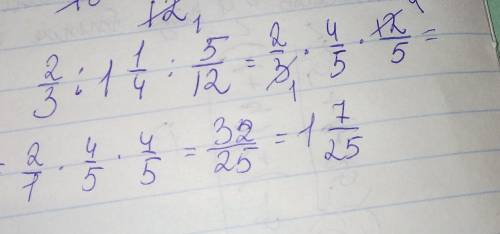 12 1
2/3 : 1 1/4 : 5/12 = 2/3 1 · 4/5 · 12/5 4 =
= 2/1 · 4/5 · 4/5 = 32/25 = 1 7/25